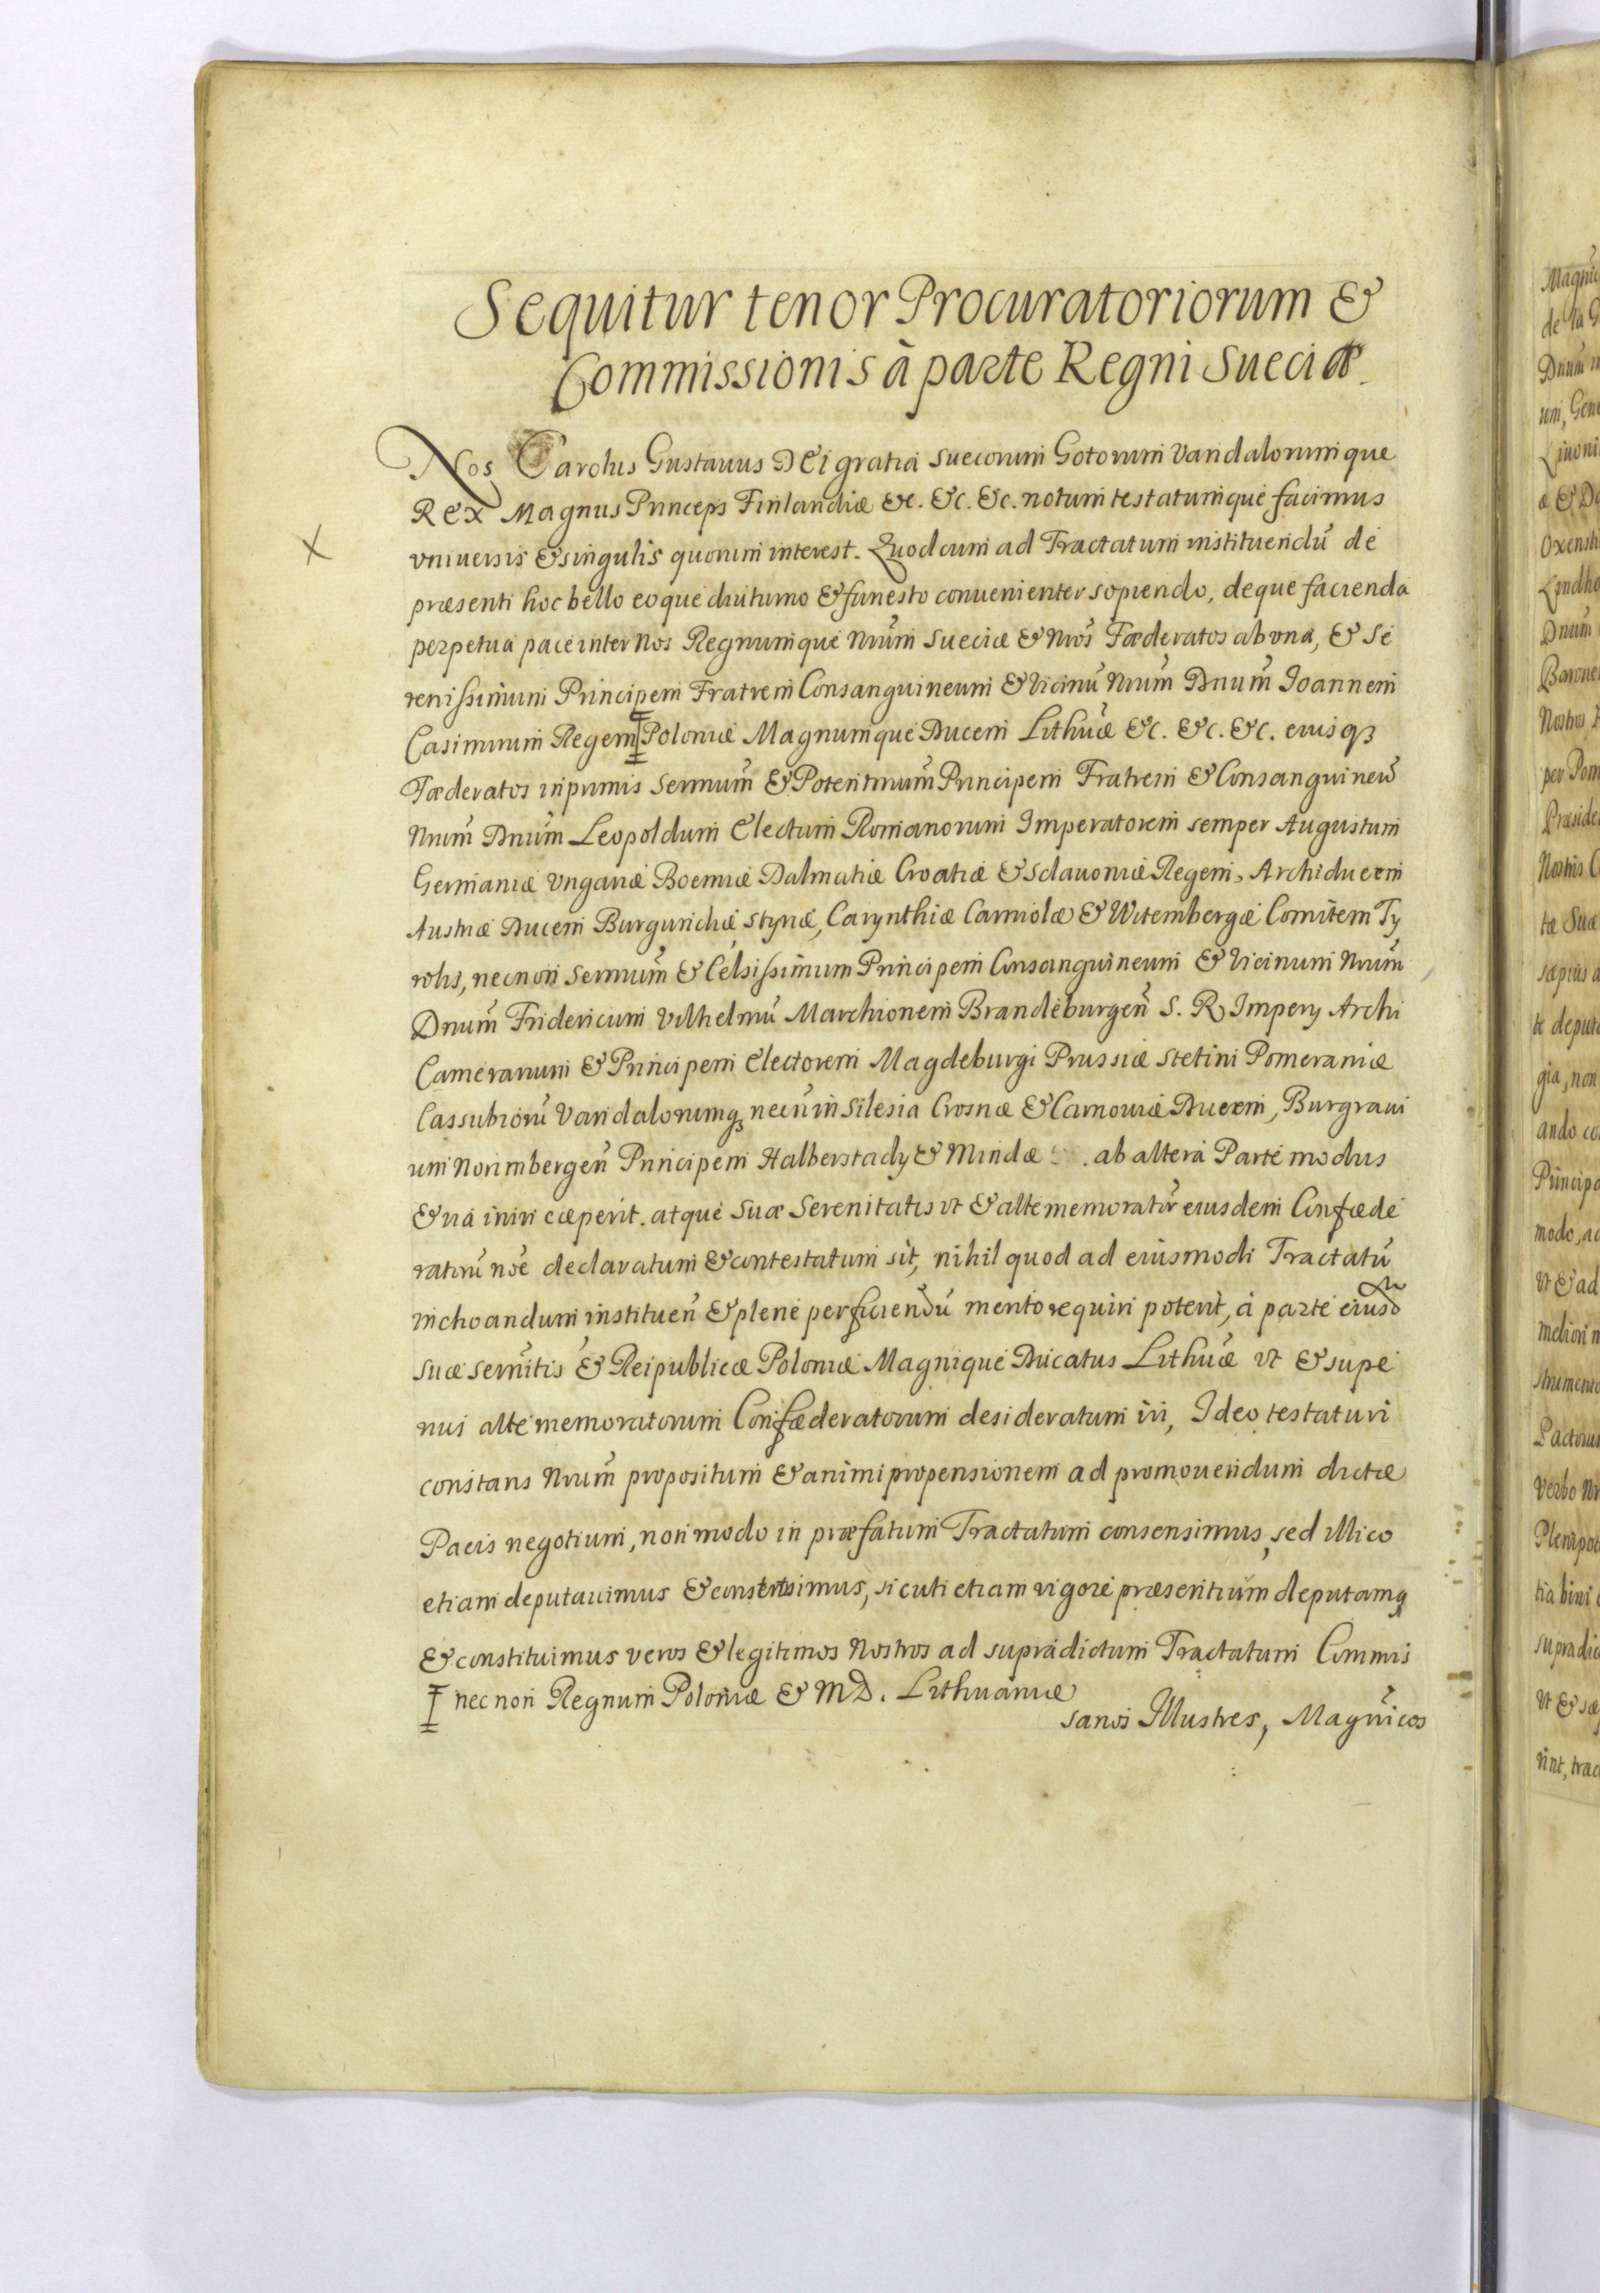 Sequitur tenor Procuratoriorum &
Commissionis à parte Regni Sueciæ
Nos Carolus Gustauus DEI gratiâ Suecorum Gotorum Vandalorumque
Rex Magnus Princeps Finlandiæ &c. &c. &c. notum testatumque facimus
vniuersis & singulis quorum interest. Quod cum ad Tractatum instituendū de
præsenti hoc bello eoque diuturno & funesto conuenienter sopiendo, deque facienda
perpetua pace inter Nos Regnumque Nrūm Sueciæ & Nrōs Fæderatos ab vna, & Se
renissimum Principem Fratrem Consanguineum & Vicinū Nrūm Dnūm Joannem
Casimirum Regem Poloniæ Magnumque Ducem Lithūæ &c. &c. &c. eiusq3
Fæderatos inprimis Sermūm & Potentmūm Principem Fratrem & Consanguineū
Nrūm Dnūm Leopoldum Electum Romanorum Imperatorem semper Augustum
Germaniæ Vngariæ Boemiæ Dalmatiæ Croatiæ & Sclauoniæ Regem, Archiducem
Austriæ Ducem Burgundiæ Styriæ, Carynthiæ Carniolæ & Witembergæ Comitem Ty
rolis, necnon Sermūm & Celsissimum Principem Consanguineum & Vicinum Nrūm
Dnūm Fridericum Vilhelmū Marchionem Brandeburgeñ S. R. Impery Archi
Camerarium & Principem Electorem Magdeburgi Prussiæ Stetini Pomeraniæ
Cassubiorū Vandalorumq3 necū in Silesia Crosnæ & Carnouiæ Ducem, Burgraui
um Norimbergeñ Principem Halberstady & Mindæ ab altera Parte modus
& via iniri cæperit. atque Suæ Serenitatis vt & altememorator̄ eiusdem Confæde
ratorū noē declaratum & contestatum sit, nihil quod ad eiusmodi Tractatū
inchoandum instituen̄ & plene perficiendū merito requiri poterit, à parte eiusd
suæ sernitis & Reipublicæ Poloniæ Magnique Ducatus Lithūæ vt & supe
rius altememoratorum Confæderatorum desideratum iri, Ideo testaturi
constans Nrūm propositum & animi propensionem ad promouendum dictæ
Pacis negotium, non modo in præfatum Tractatum consensimus, sed illico
etiam deputauimus & sicuti etiam vigore præsentium deputamq
& constituimus veros & legitimos Nostros ad supradictum Tractatum Commis
necnon Regnum Poloniæ & M D. Lithuaniæ
sarios Illustres, Magnīcos